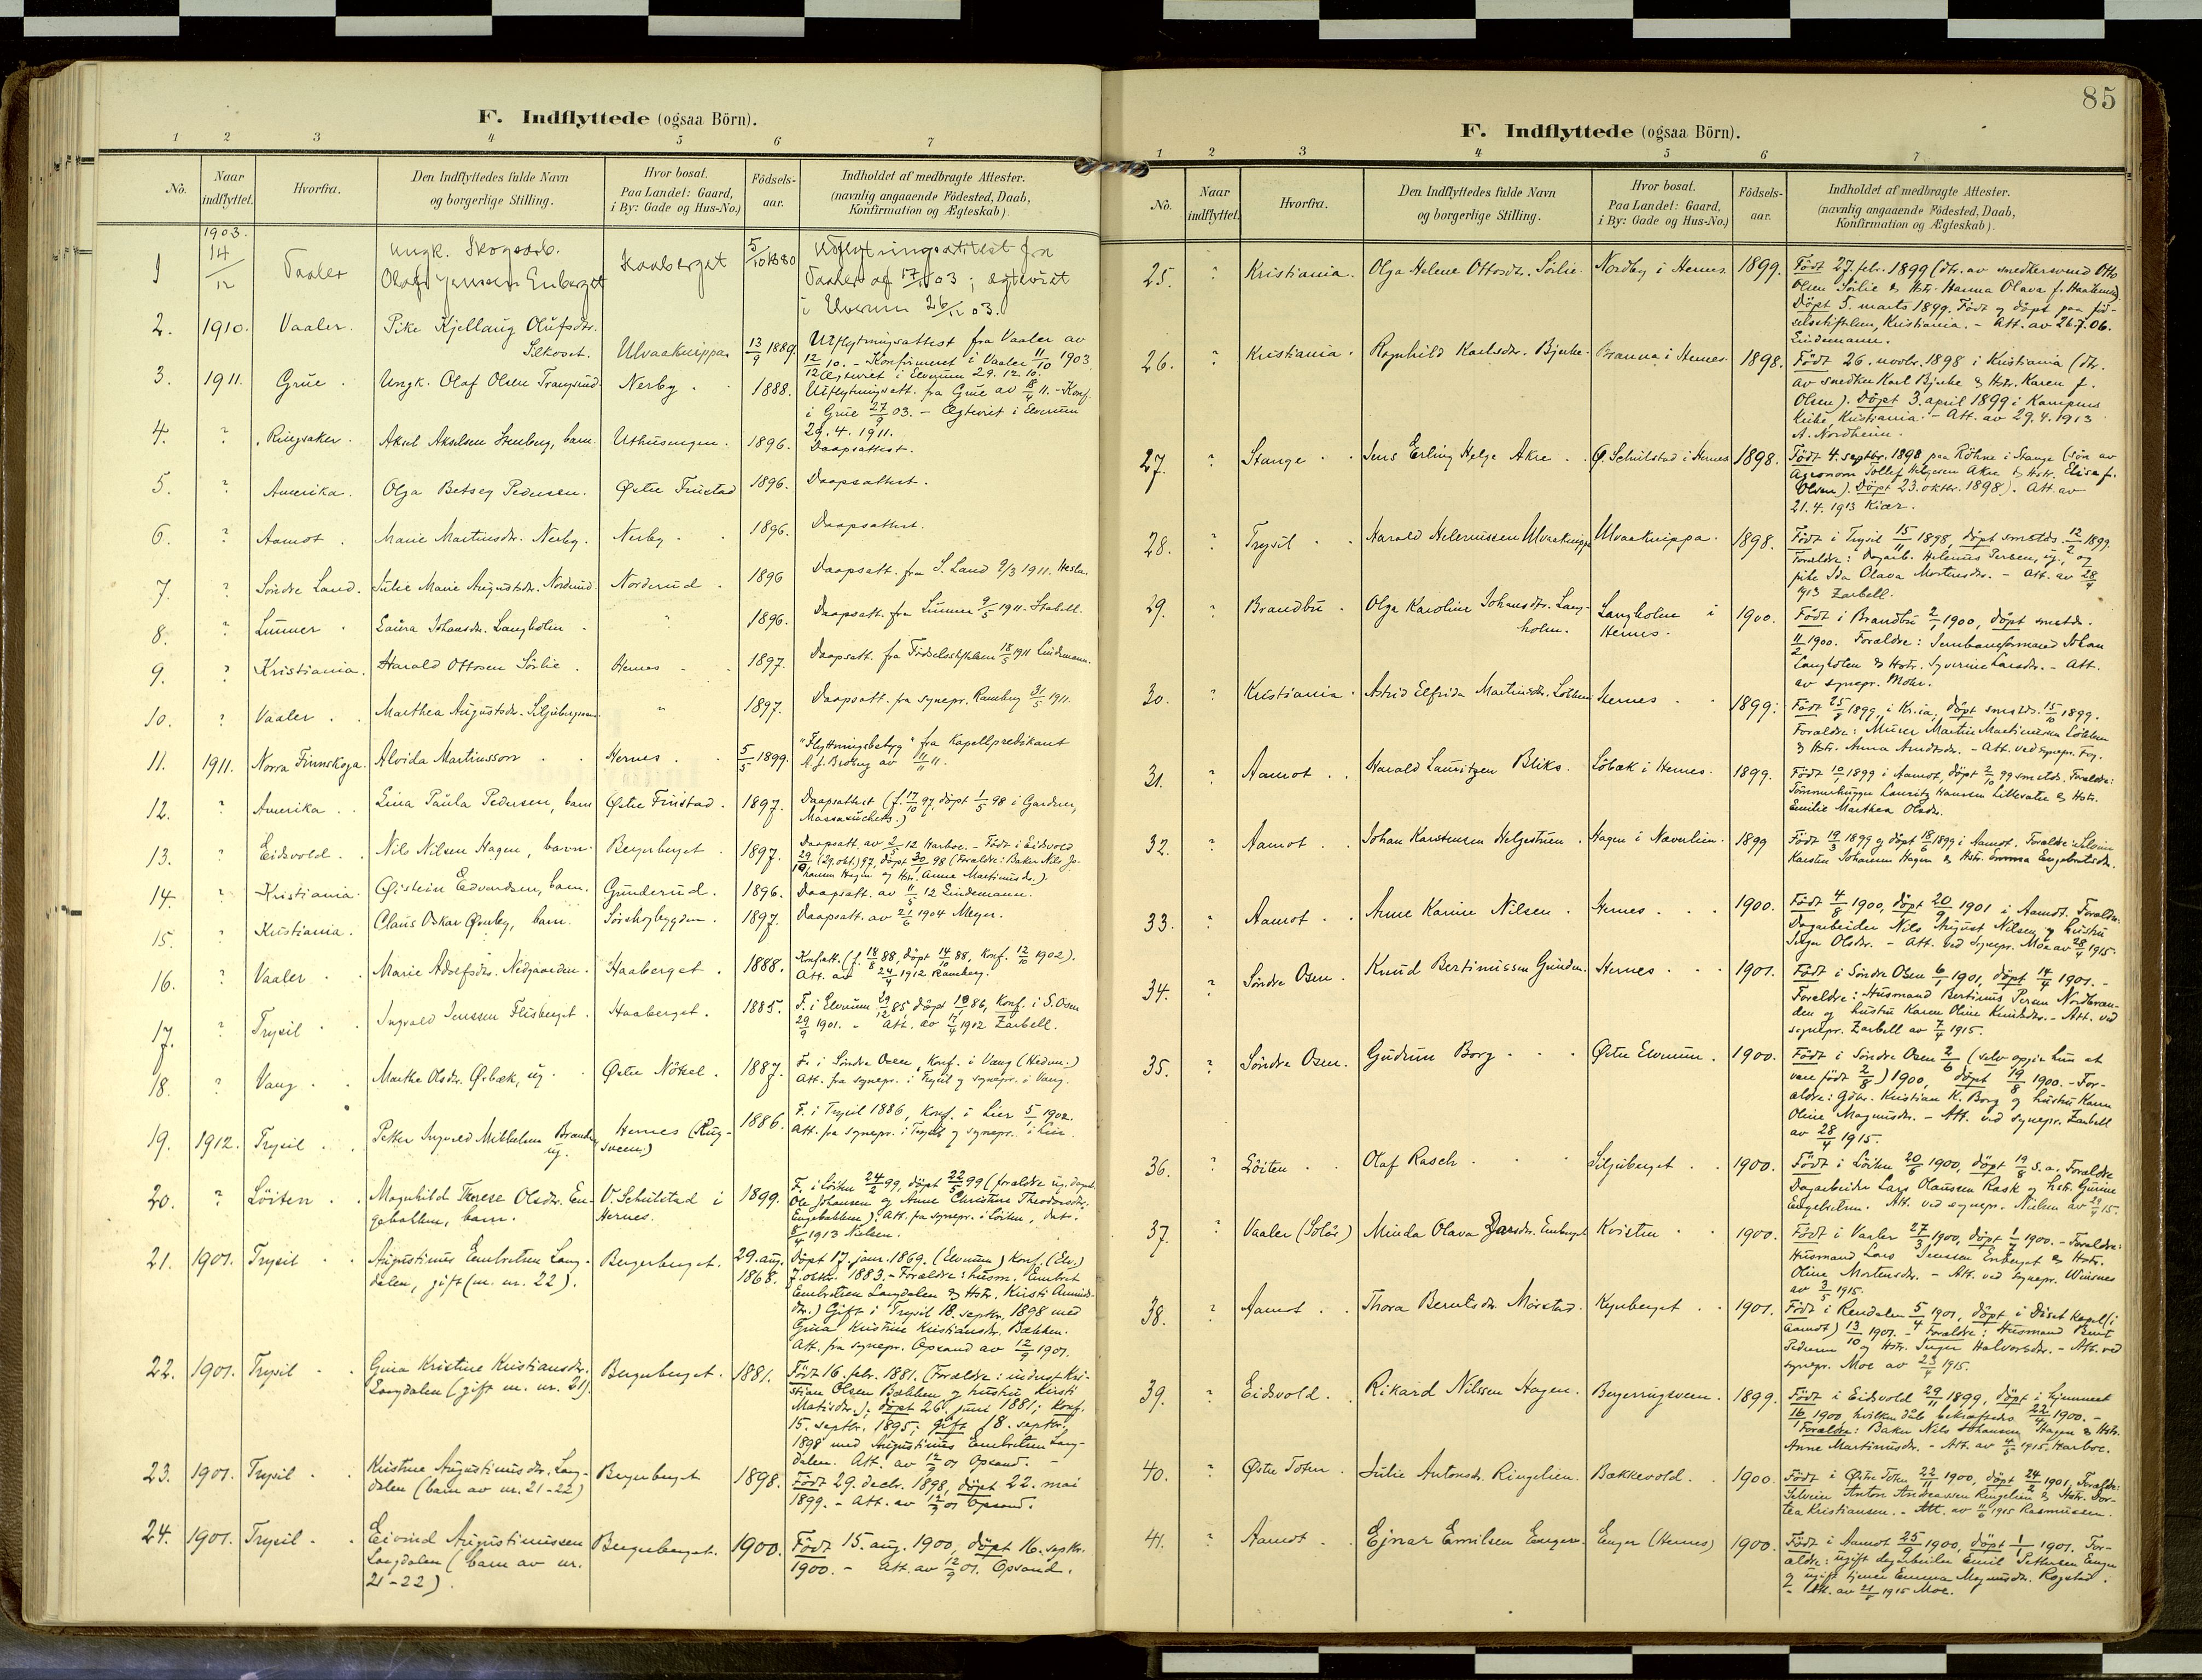 85
F. Indflyttede (ogsaa Börn).
1 2 3 4 5 6 7
No. Naar indflyttet. Hvorfra. Den Indflyttedes fulde Navn og borgerlige Stilling. Hvor bosat. Paa Landet: Gaard, i By: Gade og Hus-No.) Födsels-aar. Indholdet af medbragte Attester. (navnlig angaaende Födested, Daab, Konfirmation og Ægteskab).
1903.
1 14/12 Vaaler Ungk. Skogsarb. Olaf Jensen Enberget Haaberget 5/10 1880 Udflytningsattest fra
Vaaler af 17/ 03; ægteviet
i Elverum 26/12 03.
2. 1910. Vaaler. Pike Kjellaug Olufsdr. Silkoset. Ulvaaknippa. 13/9 1889. Utflytningsattest fra Vaaler av
12/12 10. - Konfirmeret i Vaaler 11/10 1903
Ægteviet i Elverum 29.12.10.
3. 1911. Grue. Ungk. Olaf Olsen Nerby. 1888. Utflytningsatt. fra Grue av 18/4 11. - Konf.
i Grue 27/9 03. - Ægteviet i Elverum
29.4.1911.
4. ? Ringsaker. Aksel Akselsen Stenberg, barn. Uthusengen. 1896. Daapsattest.
5. ? Amerika. Olga Betsey Pedersen. Østre Frustad 1896. Daapsattest.
6. ? Aamot. Marie Martinsdr. Nerby. Nerby. 1896. Daapsattest.
7. ? Söndre Land. Julie Marie Augustsdr. Norderud. Norderud. 1896 Daapsatt. fra S. Land 9/3 1911. Hesla.
8. ? Lunner. Laura Johansdr. Langholen. " 1896. Daapsatt. fra Lunner 9/5 1911. Stabell.
9. ? Kristiania. Harald Ottosen Sörlie. Hernes 1897. Daapsatt. fra Födselsstiftelsen 18/5 1911 Lindemann.
10. ? Vaaler. Marthea Augustsdr. " 1897. Daapsatt. fra sognepr. Ramberg 31/5 1911.
11. 1911. Norra Finnskoga. Alvida Martinsson Hernes. 5/5 1899. "Flyttningsbetyg" fra Kapellpredikant
A. J. av 11/11 11.
12. ? Amerika. Lina Paula Pedersen, barn Østre Frustad. 1897. Daapsattest (f. 17/10 97, döpt 1/5 98 i Gardner,
Massasuchets.)
13. ? Eidsvold. Nils Nilsen Hagen, barn. Bergerberget. 1897. Daapsatt av 2/5 12 Harboe. - Födt i Eidsvold
29/10 (29. okt.) 97, döpt 30/ 98 (Forældre: Baker Nils Jo-
hansen Hagen og Hstr. Anne Martinusdr.).
14. ? Kristiania. Øistein Edvardsen, barn. Gunderud. 1896. Daapsatt. av 11/5 12 Lindemann.
15. ? Kristiania. Claus Oskar Ørnby, barn. Sørskogbygden. 1897. Daapsatt. av 21/6 1904 Meyer.
16. ? Vaaler. Marie Adolfsdr. Nedgaarden. Haaberget. 1888. Konf.att. (f. 18/8 88, döpt 14/10 88, konf. 12/10 1902).
Att. av 24/4 1912 Ramberg.
17. ? Trysil. Ingvald Jenssen Flisberget. Haaberget. 1885. F. i Elverum 29/12 85, döpt 86, konf. i S. Osen
29/9 1901. - Att. av 17/4 1912 Zarbell.
18. ? Vang. Marthe Olsdr. Ørbæk, ug. Østre Nökel. 1887. F. i Söndre Osen, konf. i Vang (Hedm.)
Att. fra sognepr. i Trysil og sognepr. i Vang.
19. 1912. Trysil. Petter Ingvald Mikkelsen ug. Hernes (Rug-sveen.) 1886. F. i Trysil 1886, konf. i Lier 5/ 1902.
Att. fra sognepr. i Trysil og sognepr. i Lier.
20. ? Löiten. Magnhild Therese Olsdr. En-gebakken, barn. V. Schulstad i Hernes. 1899. F. i Löiten 24/2 99, döpt 22/5 99 (foraldre ug.
Ole Johansen og Anne Christine Theodorsdr.
Engebakken). Att. fra sognepr. i Löiten, dat.
8/4 1913 Nielsen.
21. 1901. Trysil. Augustinus Embretsen Lang-dalen, gift (m. nr. 22). Bergerberget. 29. aug. 1868. Döpt 17. janr. 1869. (Elverum) Konf. (Elv.)
7. oktr. 1883. - Forældre: husm. Embret
Embretsen Langdalen & Hstr. Kirsti Amunds-
dr.) Gift i Trysil 18. septbr. 1898 med
Gina Kristine Kristiansdr. Bækken.
Att. fra sognepr. Opsand av 12/9 1901.
22. 1901. Trysil Gina Kristine Kristiansdr. Langdalen (gift m. nr. 21). Bergerberget. 1881. Födt 16. febr. 1881. (Forældre: inderst Kri-
stian Olsen Bækken og hustru Kirsti
Matisdr.); döpt 26. juni 1881; konf.
15. septbr. 1895; gift 18. septbr.
1898 med Augustinus Embretsen Lang-
dalen. Att. av 12/9 01 Opsand. -
23. 1901. Trysil Kristine Augustinusdr. Lang-dalen (barn av nr. 21-22) Bergerberget 1898. Födt 29. decbr. 1898, döpt 22. mai
1899. - Att. av 12/9 01 Opsand.
24. 1901. Trysil. Eivind Augustinussen Langdalen (barn av nr. 21-22). Bergerberget. 1900. Födt 15. aug. 1900, döpt 16. septbr.
1900. - Att. av 12/9 01. Opsand.
F. Indflyttede (ogsaa Börn).
1 2 3 4 5 6 7
No. Naar indflyttet. Hvorfra. Den Indflyttedes fulde Navn og borgerlige Stilling. Hvor bosat. Paa Landet: Gaard, i By: Gade og Hus-No.) Födsels-aar. Indholdet af medbragte Attester. (navnlig angaaende Födested, Daab, Konfirmation og Ægteskab).
25. ? Kristiania. Olga Helene Ottosdr. Sörlie. Nordby i Hernes. 1899. Födt 27. febr. 1899 (dtr. av snedkersvend Otto
Olsen Sörlie & Hstr. Hanna Olava f.
Döpt 5. marts 1899. Födt og döpt paa föd-
selsstiftelsen, Kristiania. - Att. av 26.7.06.
Lindemann.
26. ? Kristiania. Ragnhild Karlsdr. Bjerke. Branna i Hernes. 1898. Födt 26. novbr. 1898 i Kristiania (dtr.
av snedker Karl Bjerke & Hstr. Karen f.
Olsen). Döpt 3. april 1899 i Kampens
Kirke, Kristiania. - Att. av 29.4.1913
A. Nordheim.
27. ? Stange Jens Erling Helge Akre. Ø. Schulstad i Hernes 1898. Födt 4. septbr. 1898 paa Röhne i Stange (sön av
Agronom Tollef Helgesen Akre & Hstr. Elise f.
Olsen). Döpt 23. oktbr. 1898). Att. av
21.4.1913 Kiær.
28. ? Trysil Harald Helenussen Ulvaaknippa Ulvaaknippa. 1898. Födt i Trysil 15/11 1898, döpt smstds. 12/2 1899.
Forældre: Dagarb. Helenus Persen, ug., og
pike Ida Olava Mortensdr. - Att. av 28/4
1913 Zarbell.
29. ? Brandbu. Olga Karoline Johansdr. Lang-holm. Langholm i Hernes. 1900. Födt i Brandbu 2/1 1900, döpt smstds.
11/2 1900. Forældre: Jernbaneformand Johan
Langholen & Hstr. Syverine Larsdr. - Att.
av sognepr. Mohr.
30. ? Kristiania. Astrid Elfrida Martinsdr. Löbben Hernes 1899. Födt 25/8 1899 i Kr.ia, döpt smstds. 15/10 1899.
Forældre: Murer Martin Martinusen Löbben
& Hstr. Anna Amundsdr. - Att. ved sognepr.
31. ? Aamot. Harald Lauritzen Bliks. Löbæk i Hernes. 1899. Födt 10/ 1899 i Aamot, döpt 2/10 99 smstds. Forældre:
Tömmerhugger Lauritz Hansen & Hstr.
Emilie Marthea Olsdr.
32. ? Aamot. Johan Karstensen Helgestuen. Hagen i Næverlien. 1899 Födt 19/3 1899 og döpt 18/6 1899 i Aamot. Forældre: Selveier
Karsten Johansen Hagen & Hstr. Emma Engebretsdr.
33. ? Aamot. Anne Karine Nilsen. Hernes. 1900. Födt 4/8 1900, döpt 20/9 1901 i Aamot. Forældre:
Dagarbeider Nils August Nilsen og hustru
Inger Olsdr. - Att. ved sognepr. Moe av 28/4 1915.
34. ? Söndre Osen. Knud Bertinussen Hernes 1901. Födt i Söndre Osen 6/1 1901, döpt 14/4 1901. -
Forældre: Husmand Bertinus Persen Nordstran-
den og hustru Karen Oline Knudsdr. - Att. ved
sognepr. Zarbell av 7/4 1915.
35. ? Söndre Osen. Gudrun Borg Østre Elverum. 1900. Födt i Söndre Osen 2/6 (selv opgir hun at
være födt 2/8) 1900, döpt 19/8 1900. - For-
ældre: Gbr. Kristian K. Borg og hustru Karen
Oline Magnusdr. - Att. ved sognepr. Zarbell
av 28/4 1915.
36. ? Löiten Olaf Rasch Siljuberget 1900. Födt i Löiten 20/6 1900, döpt 19/8 s.a. Forældre
Dagarbeider Lars Olaussen Rask og hstr. Gurine
Engebretsen. Att. ved sognepr. Nielsen av 29/4 15.
37. ? Vaaler (Solör) Minda Olava Larsdr. Enberget Kvisten 1900. Födt i Vaaler 27/3 1900, döpt 1/7 1900. - Forældre:
Husmand Lars Jenssen Enberget & Hstr.
Oline Mortensdr. - Att. ved sognepr. Winsnes
av 3/5 1915.
38. ? Aamot Thora Berntsdr. Mörstad. Kynberget 1901. Födt i Rendalen 5/4 1901, döpt i Deset kapel (i
Aamot) 13/10 1901. - Forældre: Husmand Bernt
Pedersen og Hstr. Inger Halvorsdr. - Att. ved
sognepr. Moe av 23/4 1915.
39. ? Eidsvold. Rikard Nilssen Hagen. Bergerringsveen. 1899. Födt i Eidsvold 29/11 1899, döpt i hjemmet
16/1 1900, hvilken daab bekræftedes 22/4 1900. -
Forældre: Baker Nils Johansen Hagen & Hstr.
Anne Martinusdr. - Att. av 4/5 1915. Harboe.
40. ? Østre Toten. Julie Antonsdr. Ringelien. Bakkevold. 1900. Födt i Østre Toten 22/11 1900, döpt 24/2 1901. Forældre:
Selveier Anton Andreassen Ringelien & Hstr. Dor-
tea Kristiansen. - Att. av 11/6 1915 Rasmussen.
41. ? Aamot. Ejnar Emilsen Enger. Enger (Hernes) 1900. Födt i Aamot 25/9 1900, döpt 1/1 1901. For-
ældre: ugift dagarbeider Emil Pettersen Enger
og ugift tjener Emma Magnusdr. Rogstad.
- Att. av 21/ 1915 Moe.